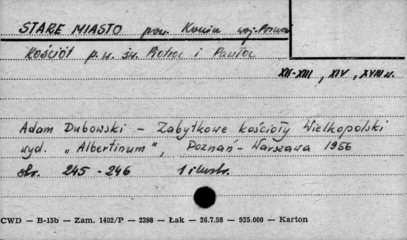 STARE MIASTO pow. Konin woj. Poznań
Kościół p.w. św. Piotra i Pawła
XII-XIII, XIV, XVIII w.
Adam Dubowski - Zabytkowe kościoły Wielkopolski
wyd. „Albertinum", Poznań - Warszawa 1956
str. 245-246 1 ilustr.
CWD — B-15b — Zam. 1402/P — 2398 — Łak — 26.7.58 — 935.000 — Karton